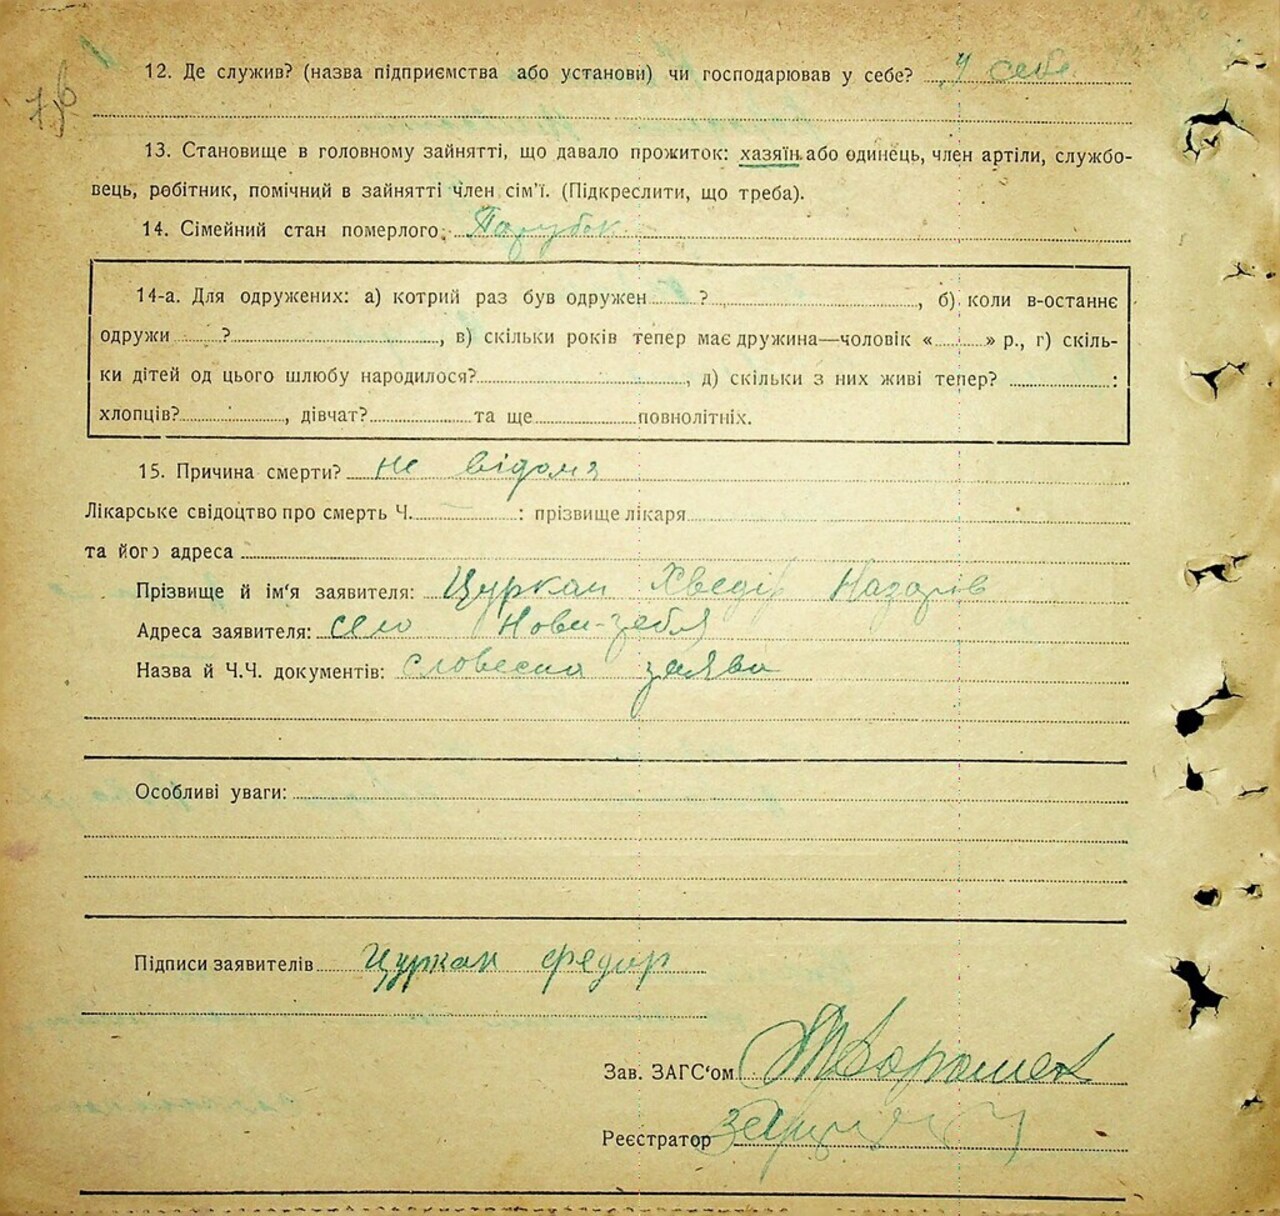 76
12. Де служив? (назва підприємства або установи) чи господарював у себе? у себе
13. Становище в головному зайнятті, що давало прожиток: хазяїн або одинець, член артіли, службо-
вець, робітник, помічний в зайнятті член сім'ї. (Підкреслити, що треба).
14. Сімейний стан померлого: Парубок
14-а. Для одружених: а) котрий раз був одружен ? , б) коли в-останнє
одружи ? , в) скільки років тепер має дружина—чоловік « » р., г) скіль-
ки дітей од цього шлюбу народилося? , д) скільки з них живі тепер? :
хлопців? , дівчат? та ще повнолітніх.
15. Причина смерти? не відома
Лікарське свідоцтво про смерть Ч. — : прізвище лікаря
та його адреса
Прізвище й ім'я заявителя: Цуркан Хведір Назарів
Адреса заявителя: село Нови-
Назва й Ч.Ч. документів: словесна заява
Особливі уваги:
Підписи заявителів Цуркан Федір
Зав. ЗАГС'ом
Реєстратор